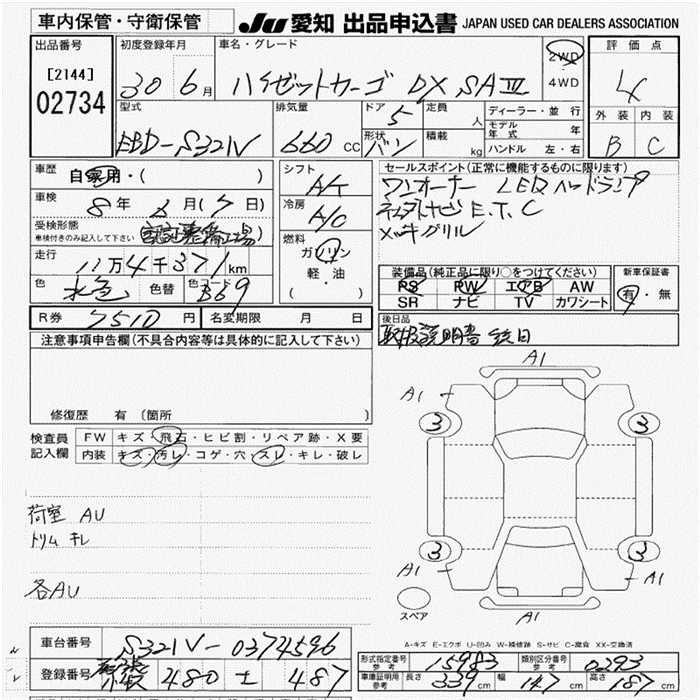 車内保管・守衛保管
JU 愛知 出品申込書 JAPAN USED CAR DEALERS ASSOCIATION
出品番号
[2144]
02734
初度登録年月
30 6月
車名・グレード
ハイゼットカーゴ DX SAⅢ
2WD
4WD
評価点
4
外装 内装
B C
型式
EBD-S321V
排気量
660 CC
ドア 5
形状 バン
定員 人
積載 kg
ディーラー・並行
モデル年式 年
ハンドル 左・右
車歴
自家用・( )
車検
8年 6月(7日)
受検形態
車検付きのみ記入して下さい
(認証整備工場)
走行
11万4千371km
色 水色 色替 色コード B69
シフト
A/T
冷房
A/C
燃料
ガソリン
軽・油
( )
セールスポイント(正常に機能するものに限ります)
ワンオーナー LEDヘッドランプ
E.T.C
メッキグリル
装備品(純正品に限り○をつけてください)
PS PW エアB AW
SR ナビ TV カワシート
新車保証書
有・無
R券 7510円 名変期限 月 日
後日品
取扱説明書 後日
注意事項申告欄(不具合内容等は具体的に記入して下さい)
修復歴 有(箇所 )
検査員記入欄
FW キズ・飛石・ヒビ割・リペア跡・X要
内装 キズ・汚レ・コゲ・穴・スレ・キレ・破レ
荷室 AU
トリム キレ
各AU
A1
A1
3 3
3 3
A1 A1
A1
スペア
A-キズ E-エクボ U-凹み W-補修跡 S-サビ C-腐食 XX-交換済
車台番号 S321V-0374596
登録番号 480 士 487
型式指定番号 参考 15983 類別区分番号 参考 0293
車庫証明用 参考 長さ 339cm 幅 147cm 高さ 187cm